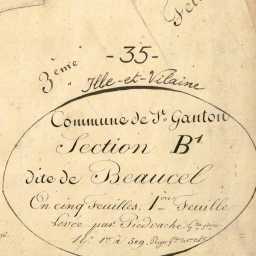 Fe
- 35 -
3ème
Ille-et-Vilaine
Commune de St. Ganton
Section B1
dite de Beaucel
En cinq Feuilles. 1ère Feuille
Levée par Piedvache
No. 1er à 519